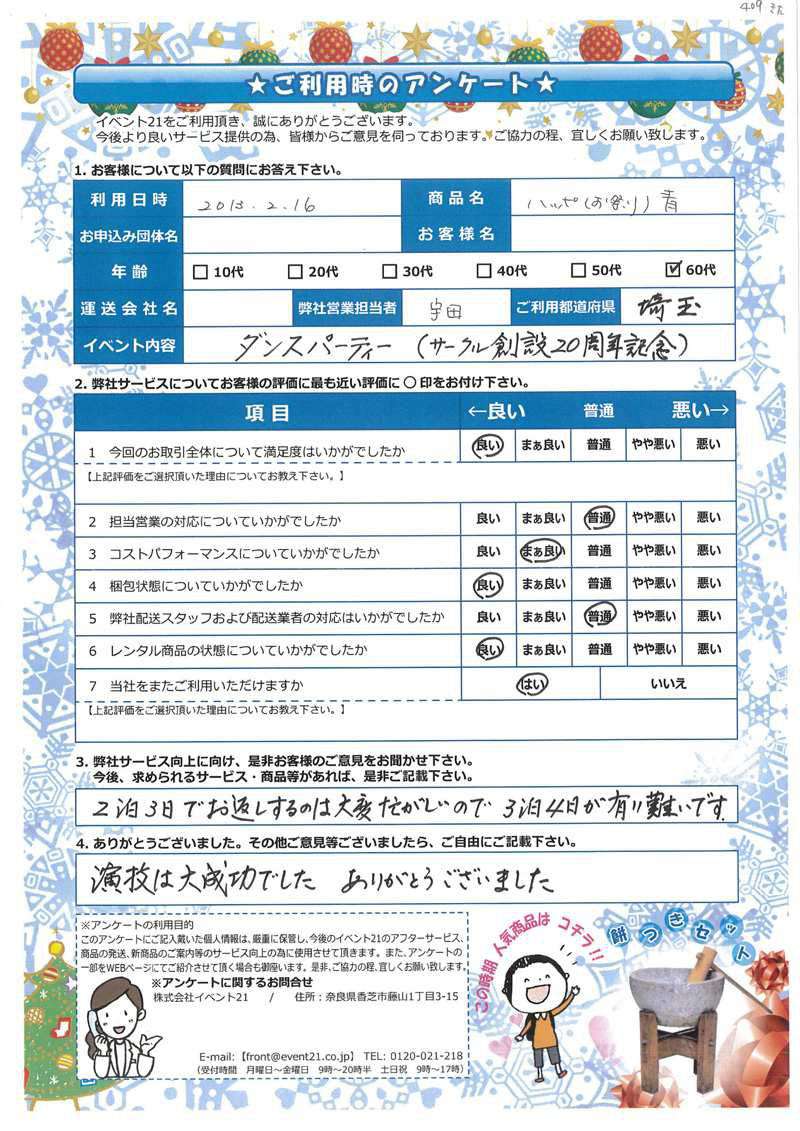 409 きた
★ご利用時のアンケート★
イベント21をご利用頂き、誠にありがとうございます。
今後より良いサービス提供の為、皆様からご意見を伺っております。ご協力の程、宜しくお願い致します。
1. お客様について以下の質問にお答え下さい。
利用日時 2013.2.16 商品名 ハッピ(お祭り)青
お申込み団体名 お客様名
年齢 10代 20代 30代 40代 50代 ☑ 60代
運送会社名 弊社営業担当者 宇田 ご利用都道府県 埼玉
イベント内容 ダンスパーティー (サークル創設20周年記念)
2. 弊社サービスについてお客様の評価に最も近い評価に 〇 印をお付け下さい。
項目 ←良い 普通 悪い→
1 今回のお取引全体について満足度はいかがでしたか 良い まぁ良い 普通 やや悪い 悪い
【上記評価をご選択頂いた理由についてお教え下さい。】
2 担当営業の対応についていかがでしたか 良い まぁ良い 普通 やや悪い 悪い
3 コストパフォーマンスについていかがでしたか 良い まぁ良い 普通 やや悪い 悪い
4 梱包状態についていかがでしたか 良い まぁ良い 普通 やや悪い 悪い
5 弊社配送スタッフおよび配送業者の対応はいかがでしたか 良い まぁ良い 普通 やや悪い 悪い
6 レンタル商品の状態についていかがでしたか 良い まぁ良い 普通 やや悪い 悪い
7 当社をまたご利用いただけますか はい いいえ
【上記評価をご選択頂いた理由についてお教え下さい。】
3. 弊社サービス向上に向け、是非お客様のご意見をお聞かせ下さい。
今後、求められるサービス・商品等があれば、是非ご記載下さい。
2泊3日でお返しするのは大変忙がしいので 3泊4日が有り難いです.
4. ありがとうございました。その他ご意見等ございましたら、ご自由にご記載下さい。
演技は大成功でした ありがとうございました
※アンケートの利用目的
このアンケートにご記入戴いた個人情報は、厳重に保管し、今後のイベント21のアフターサービス、
商品の発送、新商品のご案内等のサービス向上の為に使用させて頂きます。また、アンケートの
一部をWEBページにてご紹介させて頂く場合も御座います。是非、ご協力の程、宜しくお願い致します。
※アンケートに関するお問合せ
株式会社イベント21 / 住所:奈良県香芝市藤山1丁目3-15
E-mail:【front@event21.co.jp】 TEL: 0120-021-218
(受付時間 月曜日~金曜日 9時~20時半 土日祝 9時~17時)
この時期 人気商品は コチラ!!
餅つきセット